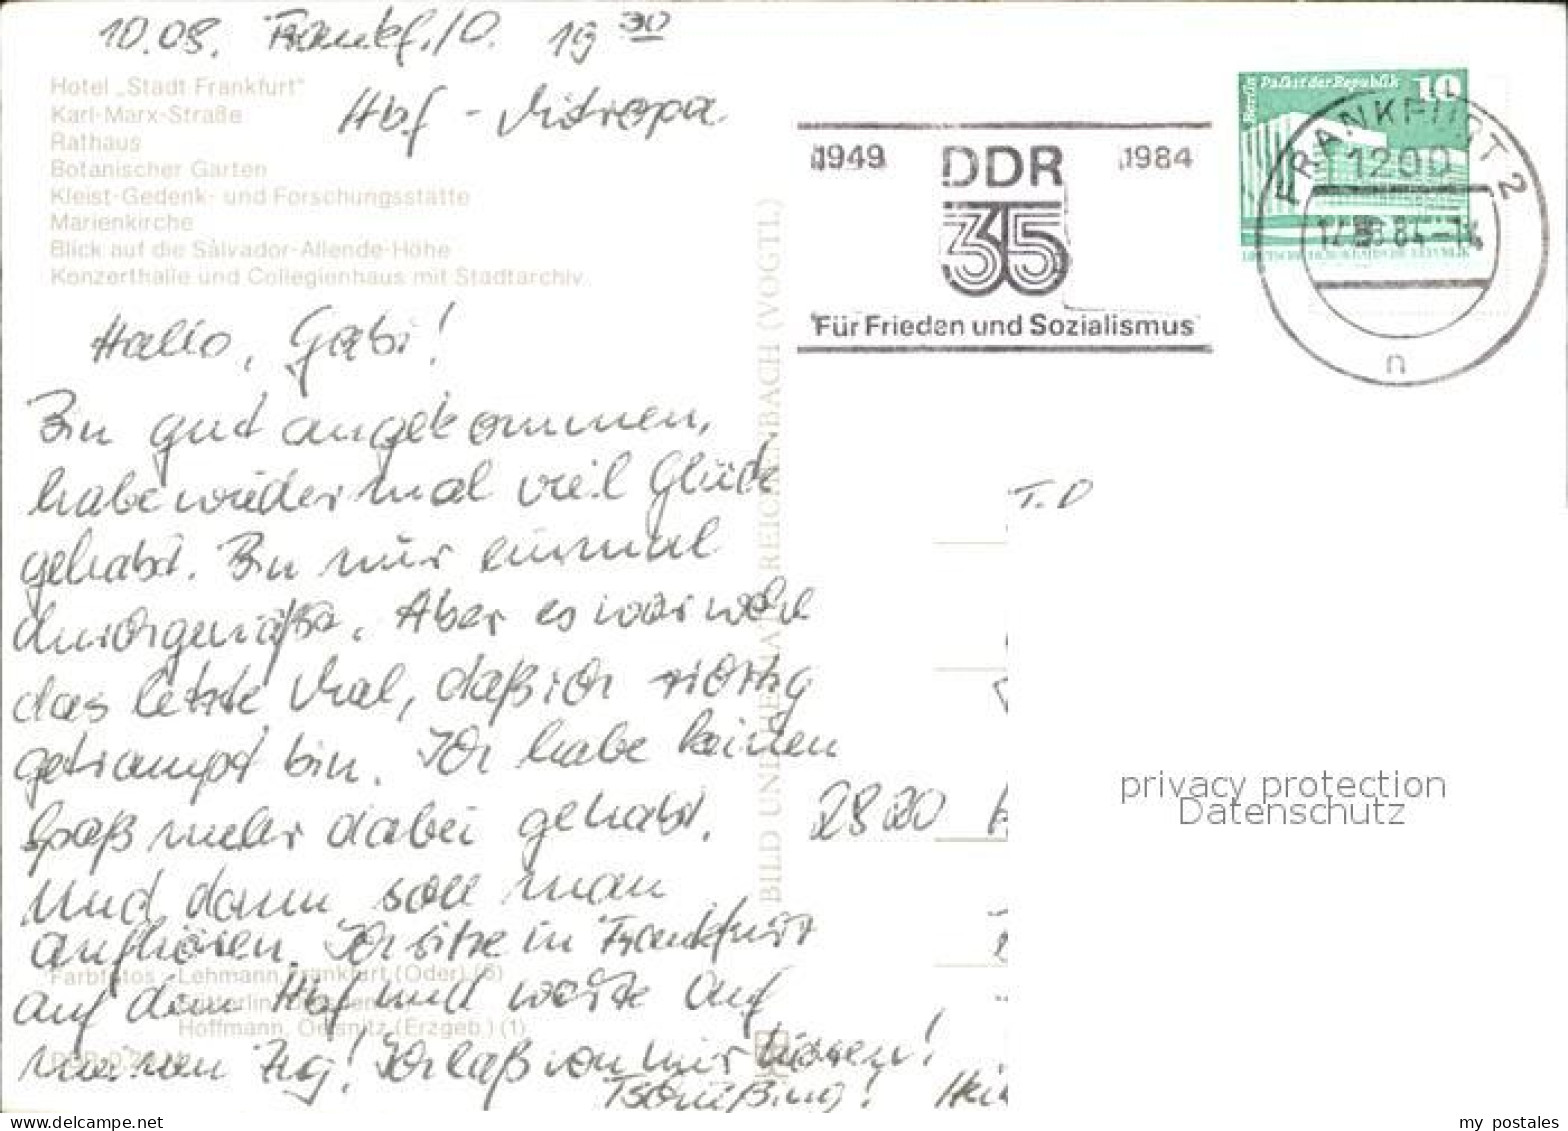 10.08. Frankf./O. 19 30
Hbf - Mitropa
Hotel „Stadt Frankfurt"
Karl-Marx-Straße
Rathaus
Botanischer Garten
Kleist-Gedenk- und Forschungsstätte
Marienkirche
Blick auf die Salvador-Allende-Höhe
Konzerthalle und Collegienhaus mit Stadtarchiv
Hallo, Gabi!
Bin gut angekommen,
habe wieder mal viel Glück
gehabt. Bin nur einmal
durchgenäßt. Aber es war wohl
das letzte Mal, daß ich richtig
getrampt bin. Ich habe keinen
Spaß mehr dabei gehabt.
Und dann soll man
aufhören. Ich sitze in Frankfurt
auf dem Hbf und warte auf
meinen Zug! Ich laß von mir hören!
Tschüßing!
Farbfotos: Lehmann, Frankfurt (Oder) (6)
Hoffmann, Oelsnitz (Erzgeb.) (1)
BILD UND HEIMAT REICHENBACH (VOGTL)
1949 DDR 1984
35
Für Frieden und Sozialismus
Berlin Palast der Republik 10
DEUTSCHE DEMOKRATISCHE REPUBLIK
FRANKFURT 2
1200
84-14
n
T. D
2820
privacy protection
Datenschutz
my postales